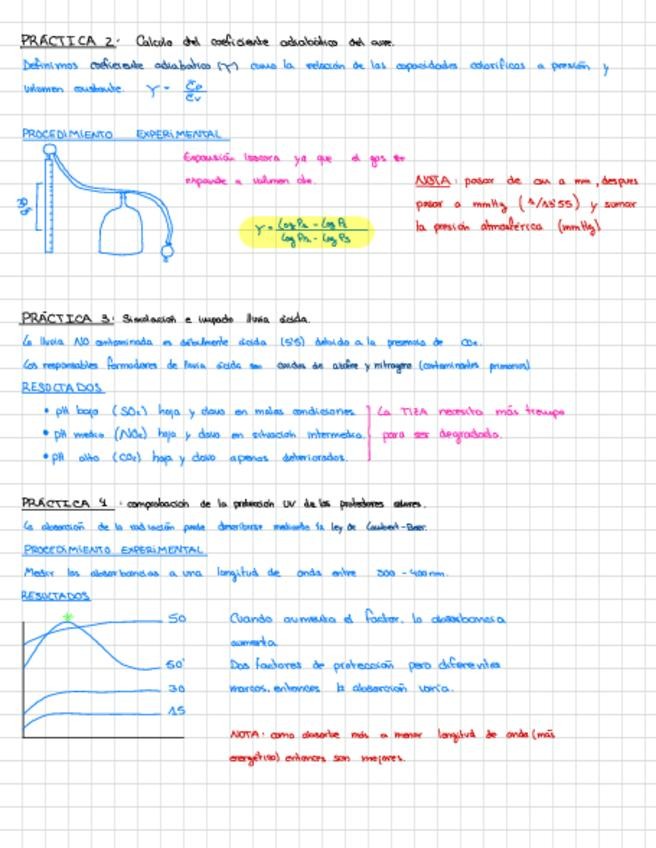 PRÁCTICA 2: Calculo del coeficiente adiabático del aire.
Definimos coeficiente adiabático (γ) como la relación de las capacidades caloríficas a presión y
volumen constante. γ = Cp / Cv
PROCEDIMIENTO EXPERIMENTAL
Expansión isocora ya que el gas se
expande a volumen cte.
γ = Log P2 - Log P1 / Log P2 - Log P3
NOTA: pasar de cm a mm, despues
pasar a mmHg (1/13'55) y sumar
la presión atmosférica (mmHg)
PRÁCTICA 3: Simulacion e impacto lluvia ácida.
La lluvia NO contaminada es débilmente ácida (5'5) debido a la presencia de CO2.
Los responsables formadores de lluvia ácida son oxidos de azufre y nitrogeno (contaminantes primarios)
RESULTADOS
• pH bajo (SO2) hoja y clavo en malas condiciones
• pH medio (NO2) hoja y clavo en situacion intermedia.
• pH alto (CO2) hoja y clavo apenas deteriorados.
La TIZA necesita más tiempo
para ser degradada.
PRÁCTICA 4: comprobacion de la proteccion UV de los protectores solares.
La absorcion de la radiacion puede describirse mediante la ley de Lambert-Beer.
PROCEDIMIENTO EXPERIMENTAL
Medir las absorbancias a una longitud de onda entre 300 - 400 nm.
RESULTADOS
50
50'
30
15
Cuando aumenta el factor, la absorbancia
aumenta.
Dos factores de protección pero diferentes
marcas, entonces la absorción varía.
NOTA: como absorbe más a menor longitud de onda (más
energético) entonces son mejores.